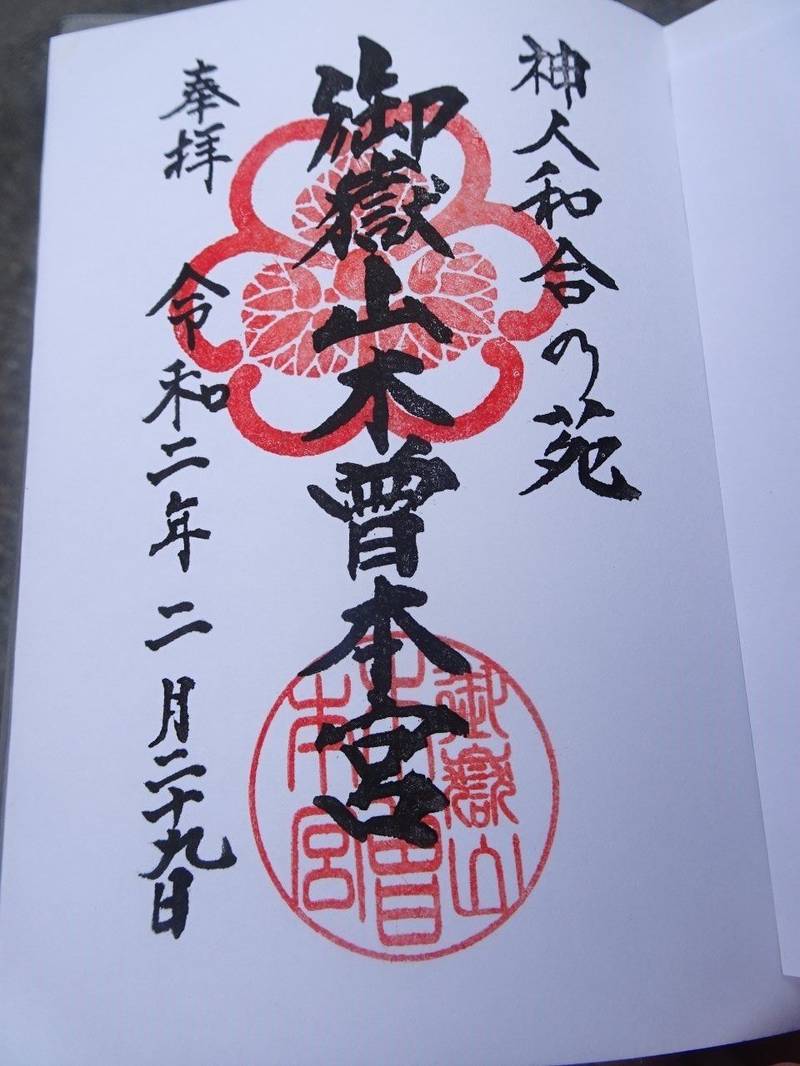 神人和合の苑
御嶽山木曽本宮
奉拝
令和二年二月二十九日
御嶽山
木曽
本宮